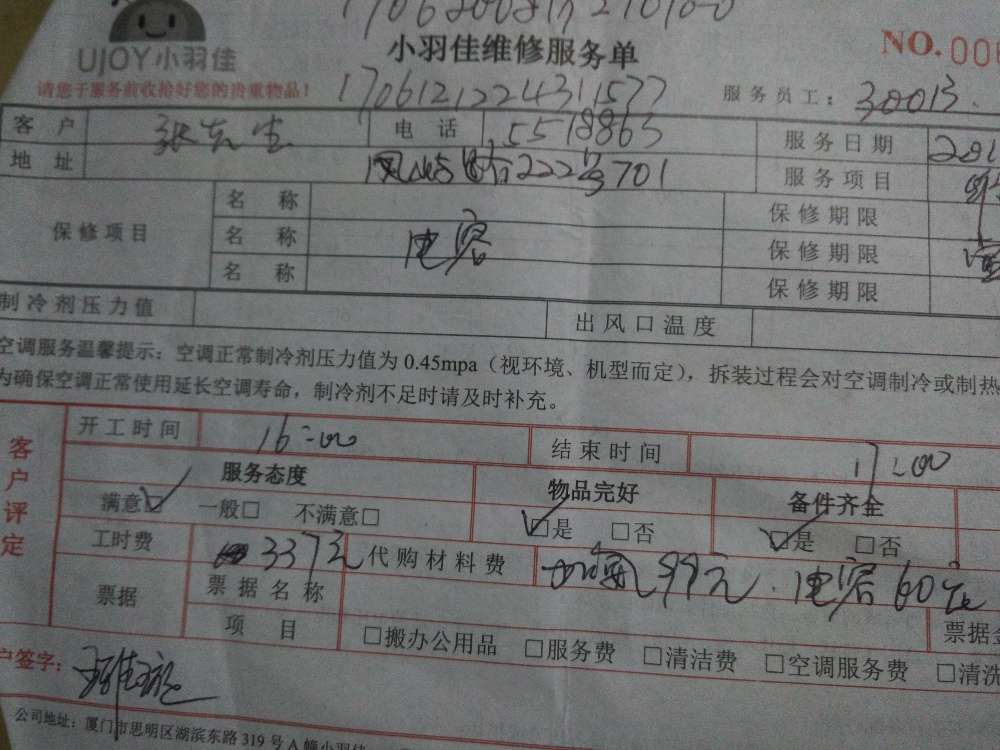 小羽佳维修服务单
NO. 000
UJOY 小羽佳
请您于服务前收拾好您的贵重物品！
1706121224311577
服务员工： 30013
客 户 张先生 电 话 5518863 服务日期 201
地 址 222号701 服务项目
保修项目 名 称 保修期限
名 称 电容 保修期限
名 称 保修期限
制冷剂压力值 出风口温度
空调服务温馨提示：空调正常制冷剂压力值为 0.45mpa（视环境、机型而定），拆装过程会对空调制冷或制热
为确保空调正常使用延长空调寿命，制冷剂不足时请及时补充。
客户评定
开工时间 16:00 结束时间 17:00
服务态度 物品完好 备件齐全
满意☑ 一般□ 不满意□ ☑是 □否 ☑是 □否
工时费 337元 代购材料费 加氟99元.电容60元
票据 票据名称 票据金
项 目 □搬办公用品 □服务费 □清洁费 □空调服务费 □清洗
户签字：
公司地址：厦门市思明区湖滨东路 319 号 A 幢小羽佳